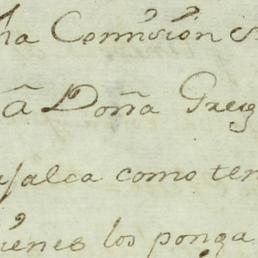 ha Comision
â Doña Greg
jalca como ten
ienes los ponga